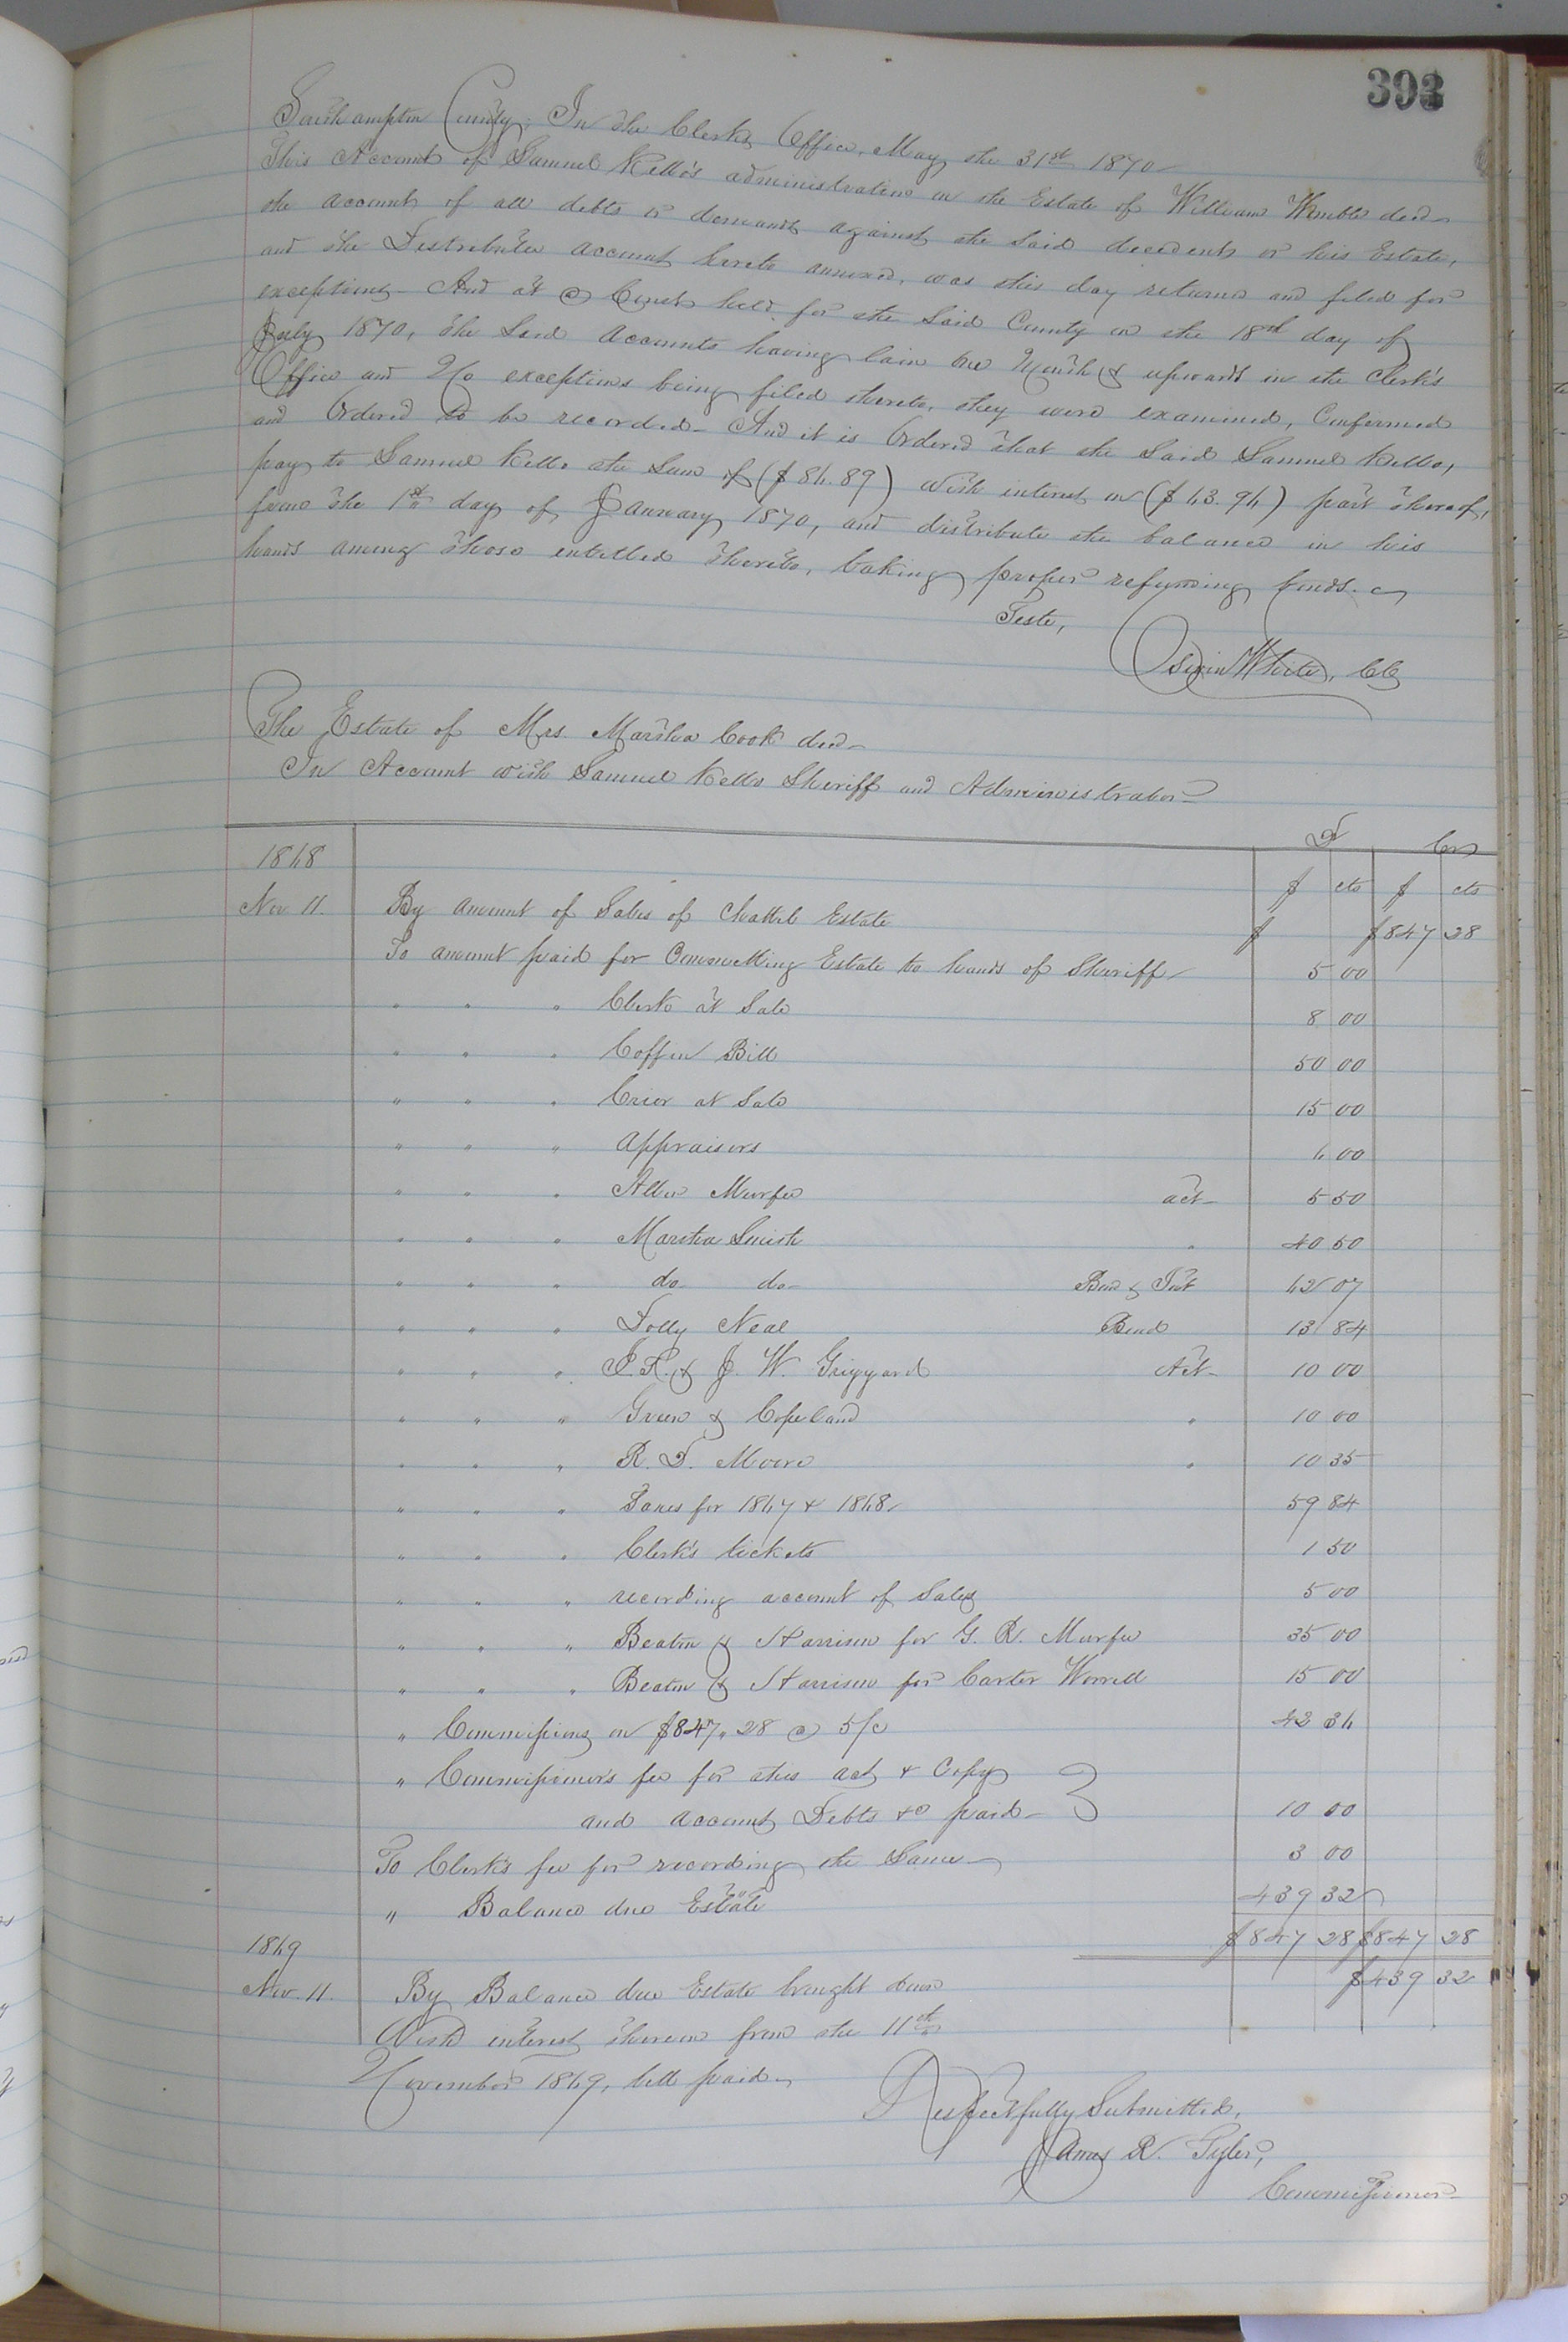 393
Southampton County: In the Clerks Office, May the 31st 1870
This Account of Samuel Kello's administration on the Estate of William Womble decd
the account of all debts or demands against the said decedent or his Estate,
and the Distributee account hereto annexed, was this day returned and filed for
exceptions. And at a Court held for the said County on the 18th day of
July 1870, the said accounts having lain one Month & upwards in the Clerk's
Office and No exceptions being filed thereto, they were examined, Confirmed
and Ordered to be recorded. And it is Ordered that the said Samuel Kello,
pay to Samuel Kello the Sum of ($86.89) with interest on ($63.96) part thereof,
from the 1st day of January 1870, and distribute the balance in his
hands among those entitled thereto, taking proper refunding bonds.
Teste,
White, CC
The Estate of Mrs. Martha Cook decd
In Account with Samuel Kello Sheriff and Administrator
Dr Crs
1868 $ cts $ cts
Nov 11. By amount of Sales of Chattel Estate $ $847 28
To amount paid for Committing Estate to hands of Sheriff 5 00
" " " Clerk at Sale 8 00
" " " Coffin Bill 50 00
" " " Crier at Sale 15 00
" " " Appraisers 6 00
" " " Allen Murfee act 5 50
" " " Martha Smith " 40 50
" " " do do Bond & Int 62 07
" " " Dolly Neal Bond 13 84
" " " P. R. & J. W. Griggard Act 10 00
" " " Green & Copeland " 10 00
" " " R. D. Moore " 10 35
" " " Taxes for 1867 & 1868 59 84
" " " Clerk's tickets 1 50
" " " recording account of Sales 5 00
" " " Beaton & Harrison for G. R. Murfee 35 00
" " " Beaton & Harrison for Carter Worrell 15 00
" Commissions on $847.28 @ 5/c 42 36
" Commissioner's fee for this act & Copy
and account Debts &c paid 10 00
To Clerk's fee for recording the Same 3 00
" Balance due Estate 439 32
1869 $847 28 $847 28
Nov. 11. By Balance due Estate brought down $439 32
With interest thereon from the 11th
November 1869, till paid
Respectfully Submitted,
James R. Tyler,
Commissioner